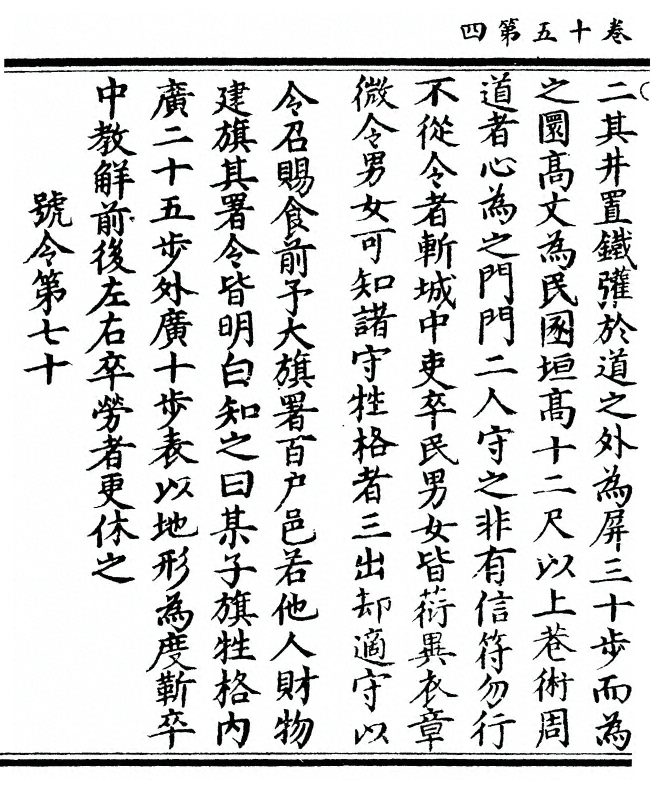 卷十五第四
二其井置鐵㼇於道之外為屏三十步而為
之圜高丈為民圂垣高十二尺以上巷術周
道者心為之門門二人守之非有信符勿行
不從令者斬城中吏卒民男女皆葕異衣章
微令男女可知諸守牲格者三出却適守以
令召賜食前予大旗署百户邑若他人財物
建旗其署令皆明白知之曰某子旗牲格内
廣二十五步外廣十步表以地形為度靳卒
中教解前後左右卒勞者更休之
號令第七十